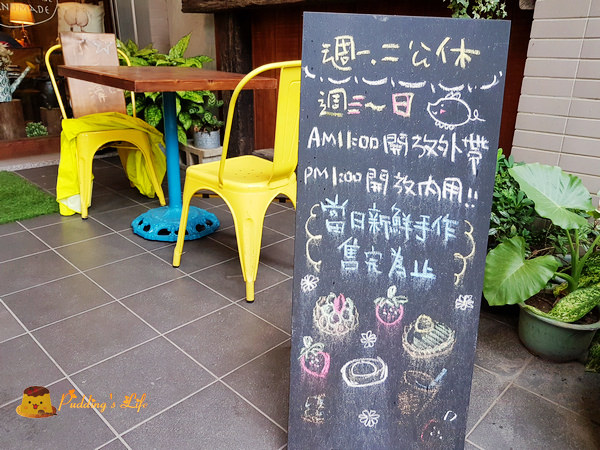 週一.二公休
週三~日
AM11:00開放外帶
PM1:00開放內用!!
當日新鮮手作
售完為止
Pudding's Life